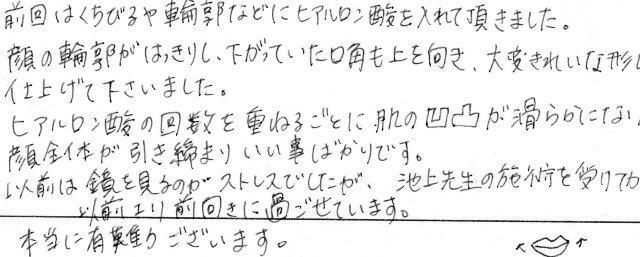 前回はくちびるや輪郭などにヒアルロン酸を入れて頂きました。
顔の輪郭がはっきりし、下がっていた口角も上を向き、大変きれいな形に
仕上げて下さいました。
ヒアルロン酸の回数を重ねるごとに肌の凹凸が滑らかにない
顔全体が引き締まりいい事ばかりです。
以前は鏡を見るのがストレスでしたが、池上先生の施術を受けてか
以前より前向きに過ごせています。
本当に有難うございます。